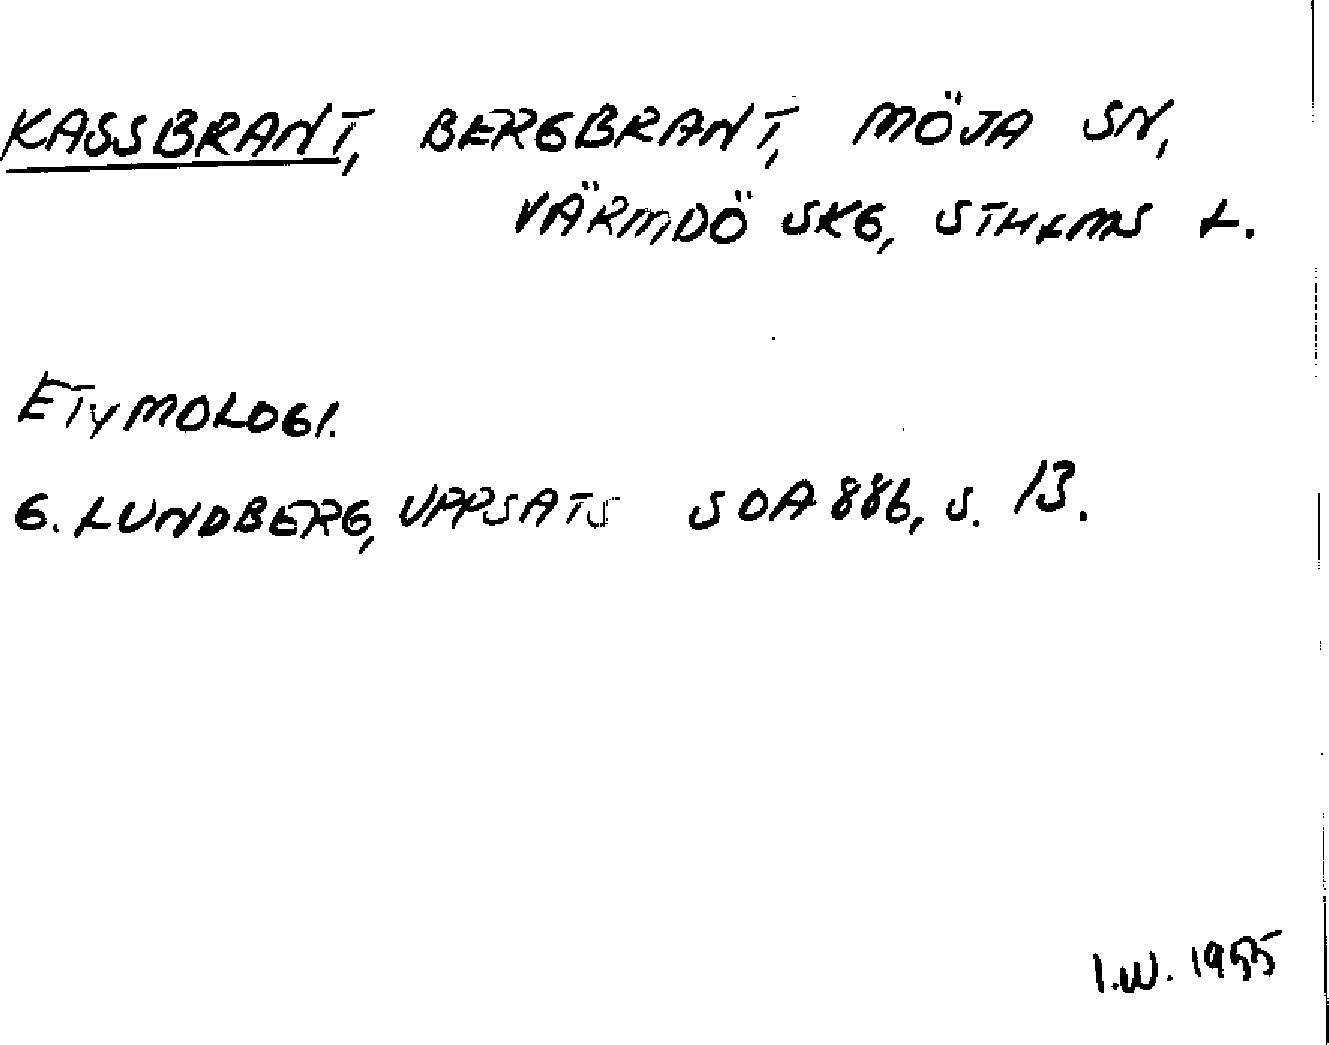 KASSBRANT, BERGBRANT, MÖJA SN,
VÄRMDÖ SKG, STHLMS L.
ETYMOLOGI.
G. LUNDBERG, UPPSATS SOA 886, S. 13.
I.W. 1955